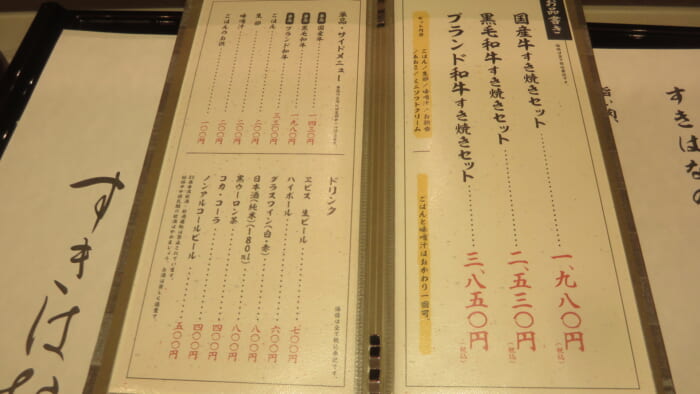 お品書き
国産牛すき焼きセット 一、九八〇円(税込)
黒毛和牛すき焼きセット 二、五三〇円(税込)
ブランド和牛すき焼きセット 三、八五〇円(税込)
セット内容
ごはん/生卵/味噌汁/お新香
/ミニソフトクリーム
ごはんと味噌汁はおかわり一回可。
単品・サイドメニュー
国産牛 一、四三〇円
黒毛和牛 一、九八〇円
ブランド和牛 三、三〇〇円
ごはん 二〇〇円
生卵
味噌汁 二〇〇円
ごはんのお供 一〇〇円
ドリンク
価格は全て税込表記です。
ヱビス 生ビール 七〇〇円
ハイボール
グラスワイン(白・赤) 六〇〇円
日本酒(純米)(180ml) 八〇〇円
黒ウーロン茶 八〇〇円
コカ・コーラ 四〇〇円
ノンアルコールビール 五〇〇円
すきはな
すきはなの